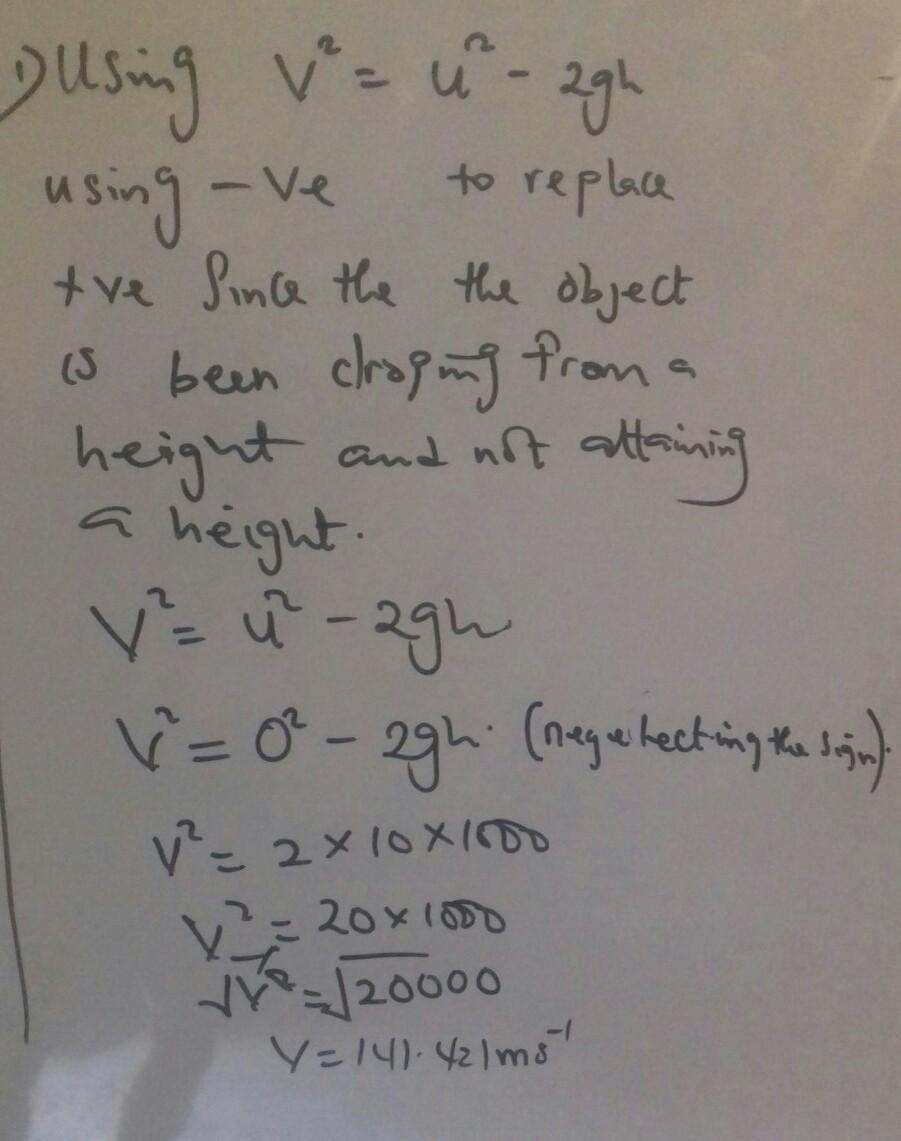 1) Using V² = u² - 2gh
using -ve to replace
+ve Since the the object
is been droping from a
height and not attaining
a height.
V² = u² - 2gh
V² = 0² - 2gh. (neguehecting the sign).
V² = 2 × 10 × 1000
V² = 20 × 1000
√V² = √20000
V = 141.421ms⁻¹